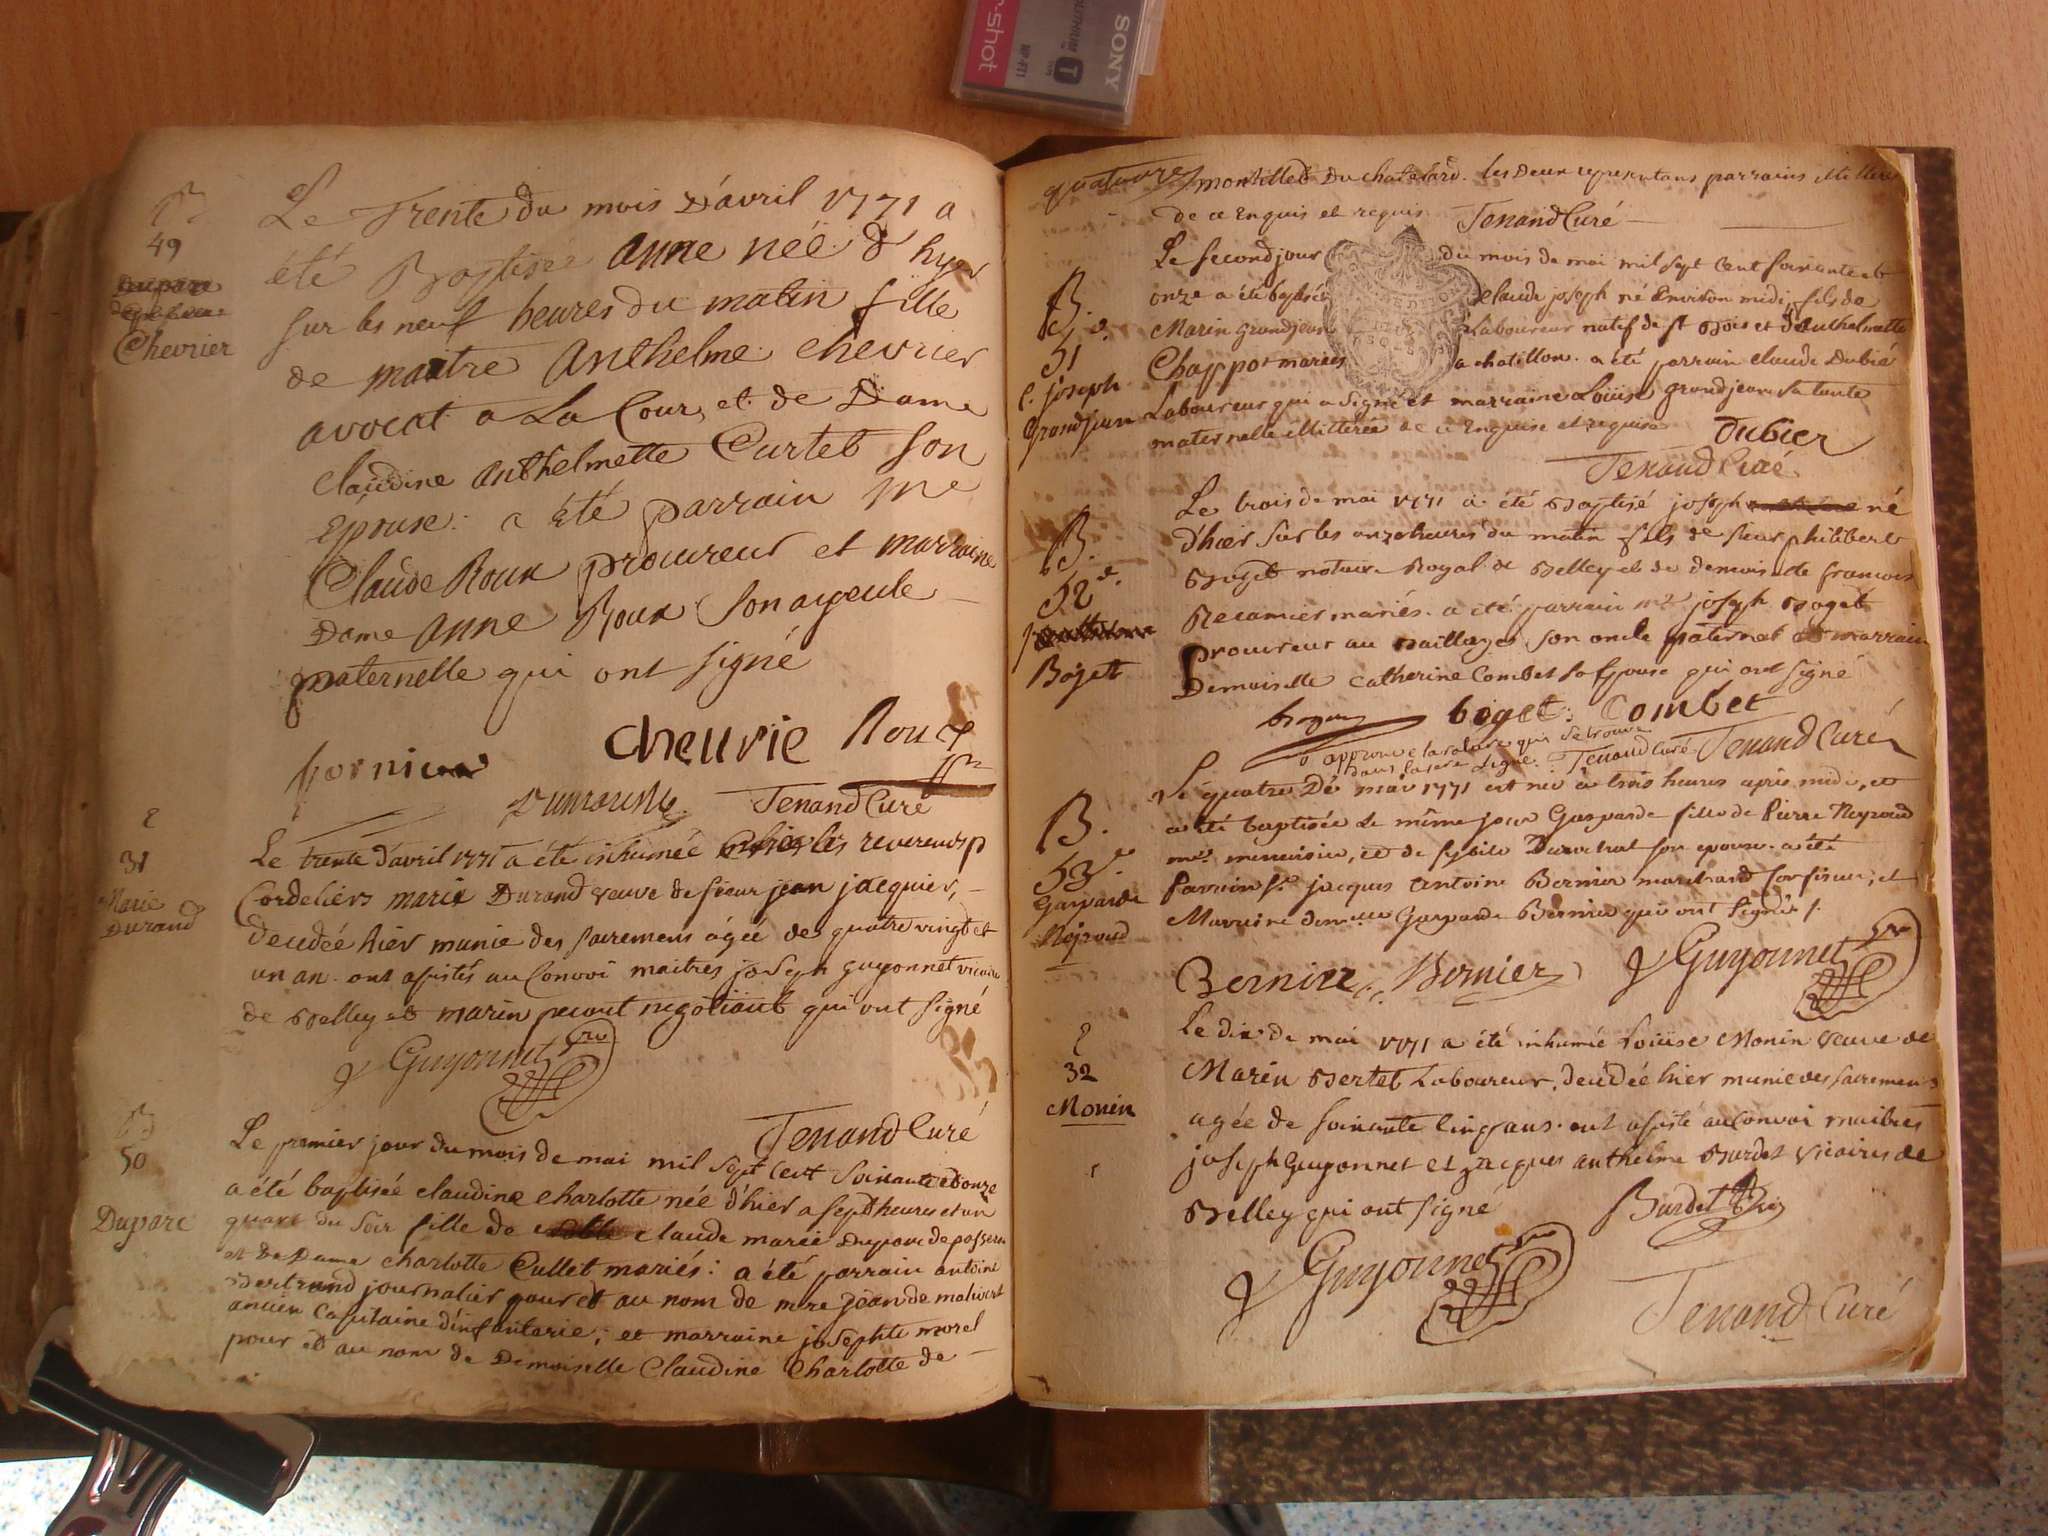 SONY
LITHIUM
T
NP-FT1
r-shot
B
49
Chevrier
Le Trente du mois D'avril 1771 a
été Baptisée anne née d'hyer
sur les neuf heures du matin fille
de maitre Anthelme chevrier
avocat a La Cour, et de Dame
Claudine anthelmette Curtet son
Epouse: a été parrain Me
Claude Roux procureur et marraine
Dame anne Roux son ayeule
paternelle qui ont signé
cheurie Roux
Tenand Curé
31
Marie
Durand
Le trente d'avril 1771 a été inhumée chez les reverends p
Cordeliers marie Durand veuve de sieur jean jacquier,
decedée hier munie des sacremens agée de quatre vingt et
un an. ont assistés au Convoi maitres joseph guyonnet vicaire
de Belley et marin negotiant qui ont signé
Guyonnet
Tenand Curé
B
50
Duparc
Le premier jour du mois de mai mil sept cent soixante et onze
a été baptisée claudine charlotte née d'hier a sept heures et un
quart du soir fille de claude marie Duparc de
et de Dame charlotte Cullet mariés: a été parrain antoine
Bertrand journalier pour et au nom de mre jean de malivert
ancien Capitaine d'infanterie; et marraine josephte morel
pour et au nom de Demoiselle Claudine Charlotte de
quatorze montillet Du chatelard. les Deux representans parrains illitteres
de ce Enquis et requis Tenand Curé
B
51
C. joseph
Grandjean
Le second jour du mois de mai mil sept cent soixante et
onze a été baptisé claude joseph né Environ midi, fils de
Marin grandjean Laboureur natif de st Bois et d'Anthelmette
Chappot mariés a chatillon. a été parrain claude Dubié
Laboureur qui a signé et marraine Loüise grandjean sa tante
maternelle illitterée de ce Enquise et requise Dubier
Tenand Curé
B.
52e.
Bojet
Le trois de mai 1771 a été Baptisé joseph né
d'hier sur les onze heures du matin fils de sieur philibert
Boget notaire Royal de Belley et de demoiselle francoise
Recamier mariés. a été parrain me joseph Boget
procureur au Baillage, son oncle paternel et marraine
Demoiselle Catherine Combet sa Epouse qui ont signé
boget: Combet
approuve la rature qui se trouve
dans la 1ere Ligne. Tenand Curé Tenand Curé
B.
53e
Gasparde
Neiroud
Le quatre De may 1771 est née à trois heures après midi, et
a été baptisée Le même jour Gasparde fille de Pierre Neyroud
me menuisier, et de sybile son epouse. a été
Parrain sr. jacques Antoine Bernier marchand confiseur, et
Marraine demelle Gasparde Bernier qui ont signés.
Bernier Bernier Guyonnet
32
Monin
Le dix de mai 1771 a été inhumée Loüise Monin veuve de
Marin Bertet Laboureur, decedée hier munie des sacremens
agée de soixante Cinq ans. ont assisté au Convoi maitres
joseph Guyonnet et jacques anthelme Burdet vicaires de
Belley qui ont signé Burdet
Guyonnet
Tenand Curé